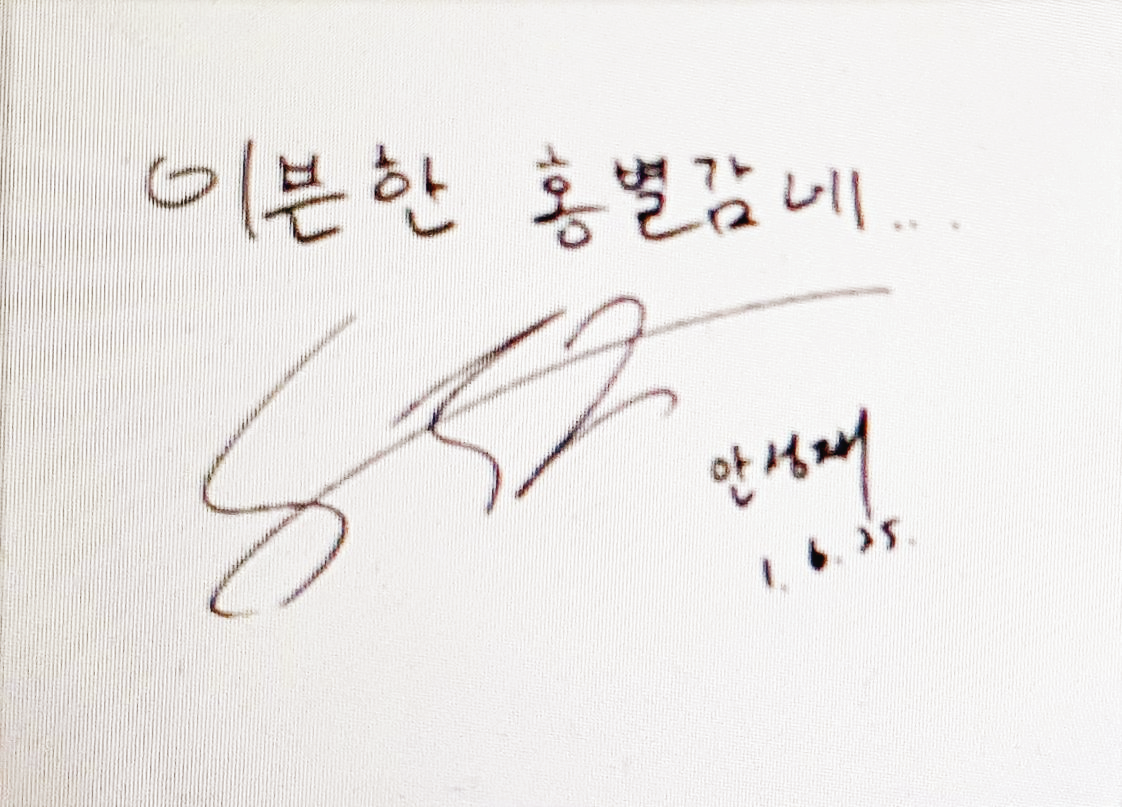 이븐한 홍별감네...
안성재
1. 6. 25.